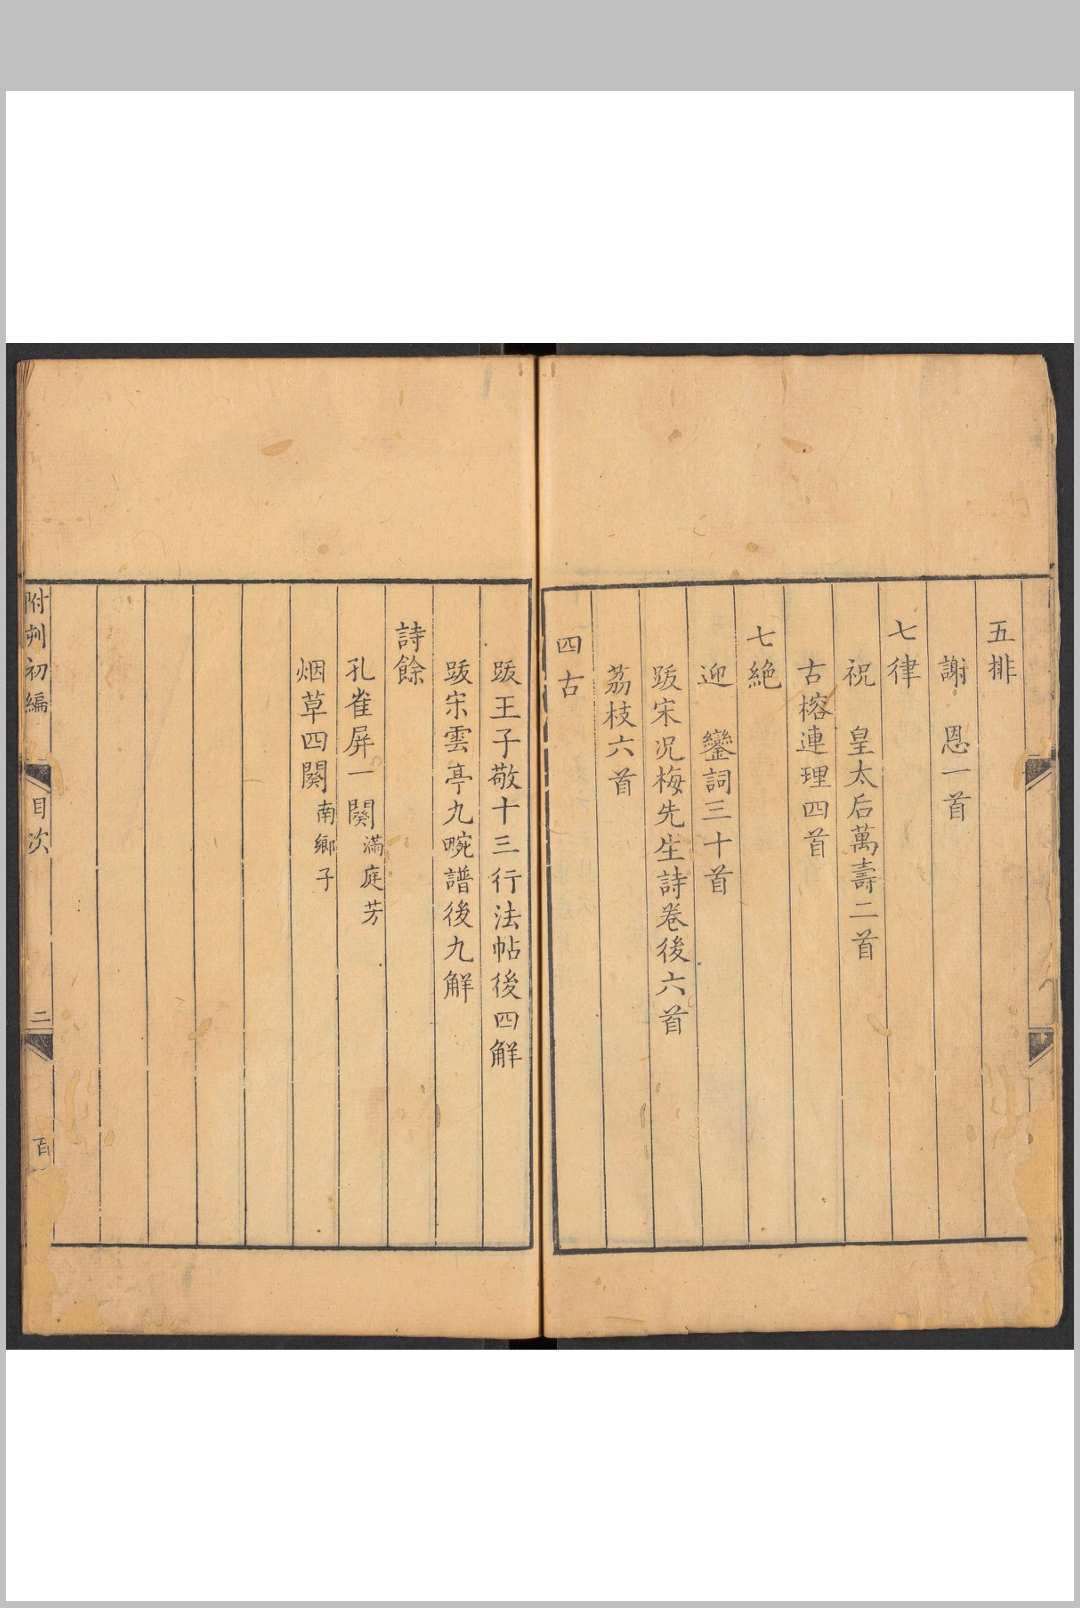 五排
謝　恩一首
七律
祝　皇太后萬壽二首
古榕連理四首
七絶
迎　鑾詞三十首
跋宋况梅先生詩卷後六首
荔枝六首
四古
跋王子敬十三行法帖後四解
跋宋雲亭九畹譜後九解
詩餘
孔雀屏一闋滿庭芳
烟草四闋南鄉子
附刋初編　目次　二